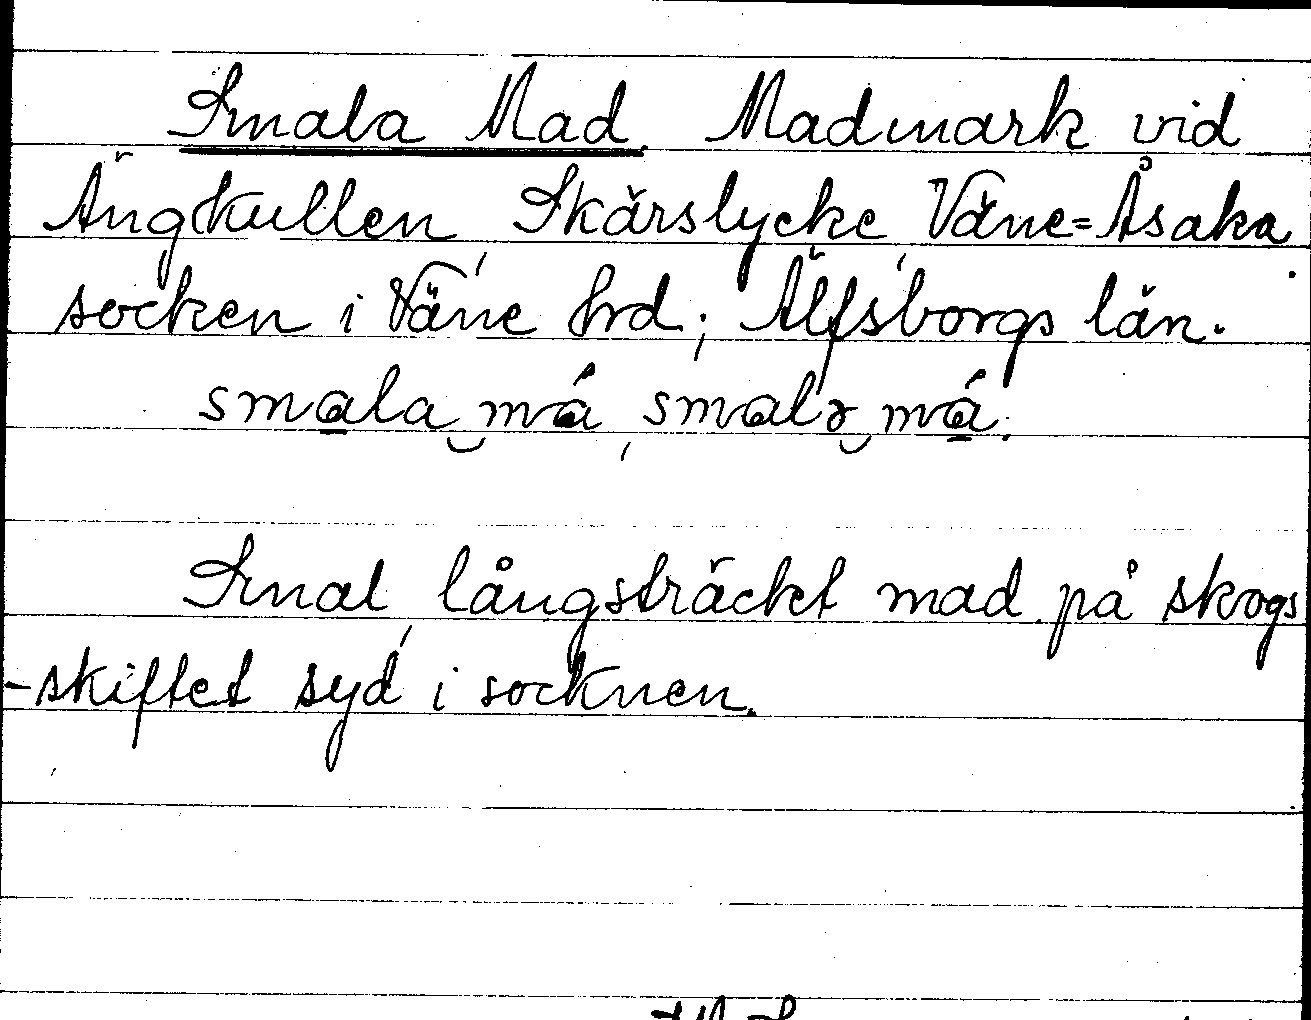 Smala Mad. Madmark vid
Ängkullen, Skärslycke, Väne=Åsaka
socken i Väne hrd; Älfsborgs län.
smala‿má, smalə‿má.
Smal långsträckt mad på skogs
-skiftet syd i socknen.